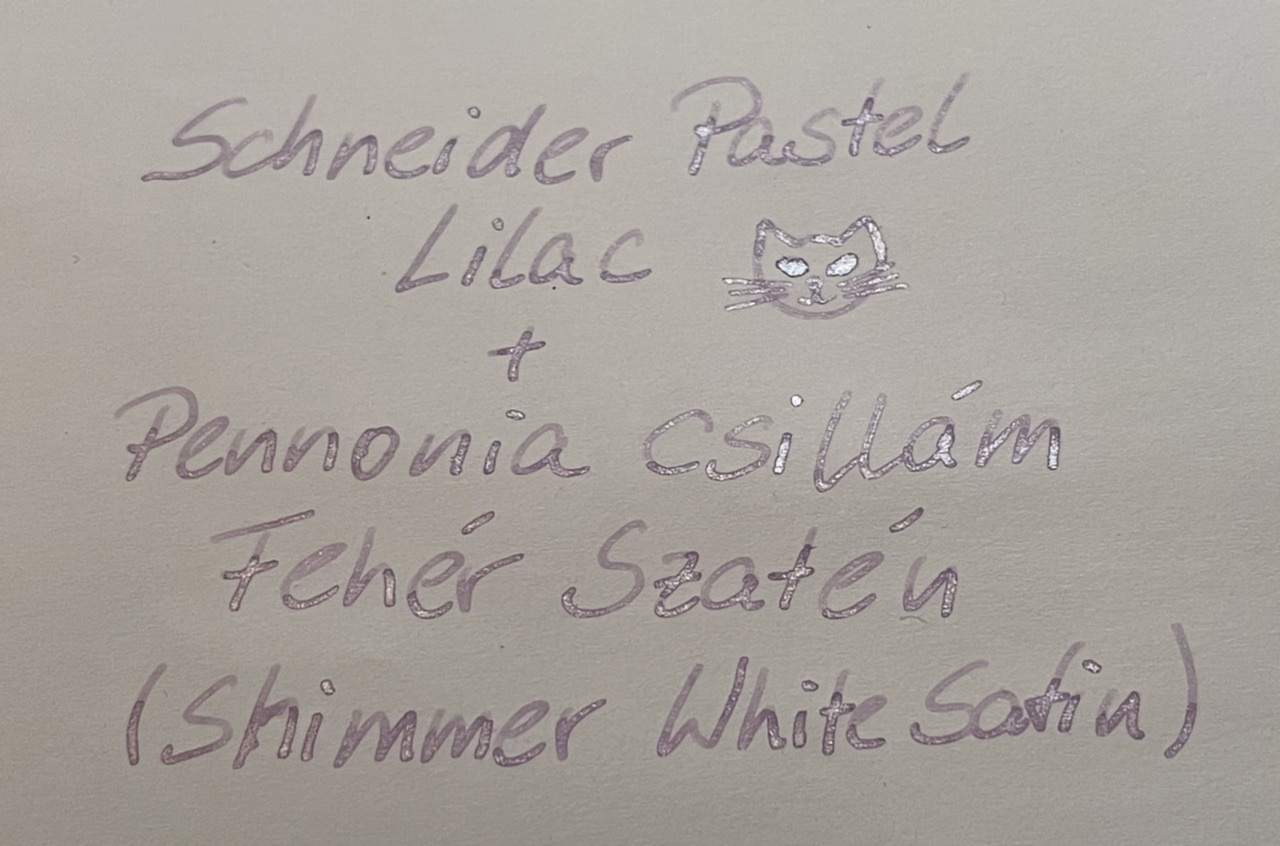 Schneider Pastel
Lilac
+
Pennonia Csillám
Fehér Szatén
(Shimmer White Satin)